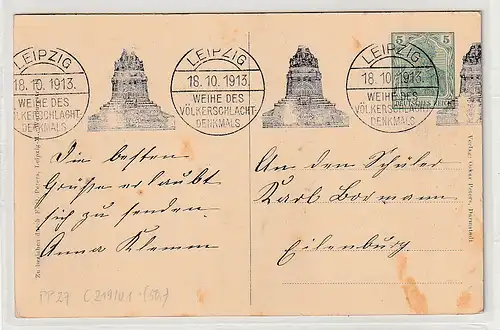 LEIPZIG
18.10.1913.
WEIHE DES
VÖLKERSCHLACHT-
DENKMALS
LEIPZIG
18.10.1913.
WEIHE DES
VÖLKERSCHLACHT-
DENKMALS
LEIPZIG
18.10.1913.
WEIHE DES
VÖLKERSCHLACHT-
DENKMALS
5 5
DEUTSCHES REICH
Die besten
Grüße erlaubt
sich zu senden
Anna Klemm
An den Schüler
Karl Bormann
Eilenburg
Zu beziehen durch Peters, Leipzig
Verlag Oskar Peters, Darmstadt.
PP 27